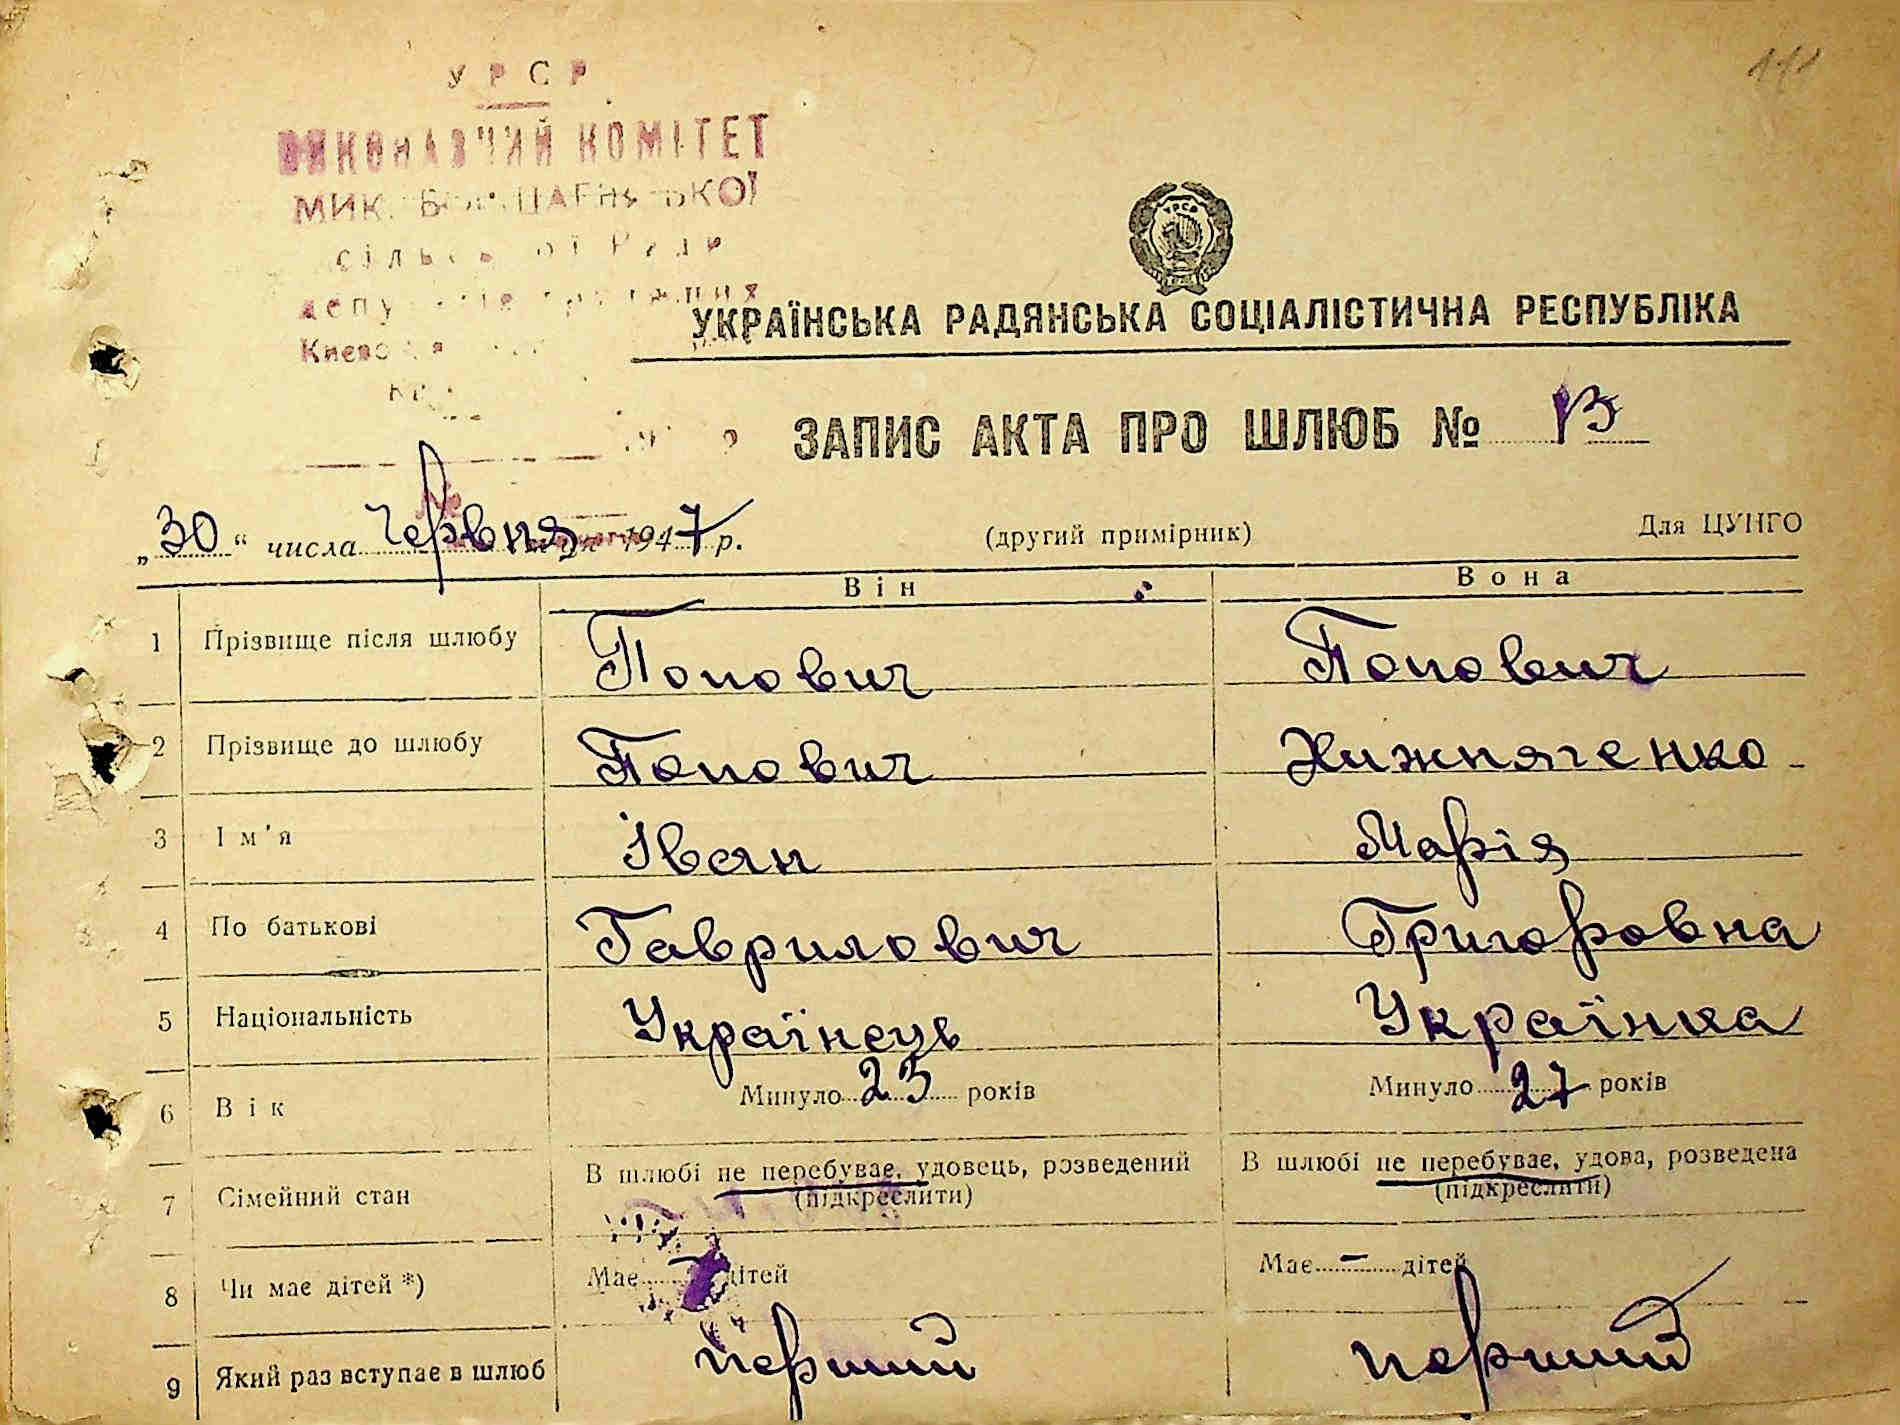 УРСР
ВИКОНАВЧИЙ КОМІТЕТ
МИК.
сільської Ради
УКРАЇНСЬКА РАДЯНСЬКА СОЦІАЛІСТИЧНА РЕСПУБЛІКА
ЗАПИС АКТА ПРО ШЛЮБ № 13
„30“ числа Червня 1947 р. (другий примірник) Для ЦУНГО
Він Вона
1 Прізвище після шлюбу Попович Попович
2 Прізвище до шлюбу Попович Хижняченко
3 Ім'я Іван Марія
4 По батькові Гаврилович Григоровна
5 Національність Українець Українка
6 Вік Минуло 23 років Минуло 27 років
7 Сімейний стан В шлюбі не перебуває, удовець, розведений В шлюбі не перебуває, удова, розведена
(підкреслити) (підкреслити)
8 Чи має дітей *) Має – дітей Має – дітей
9 Який раз вступає в шлюб перший перший